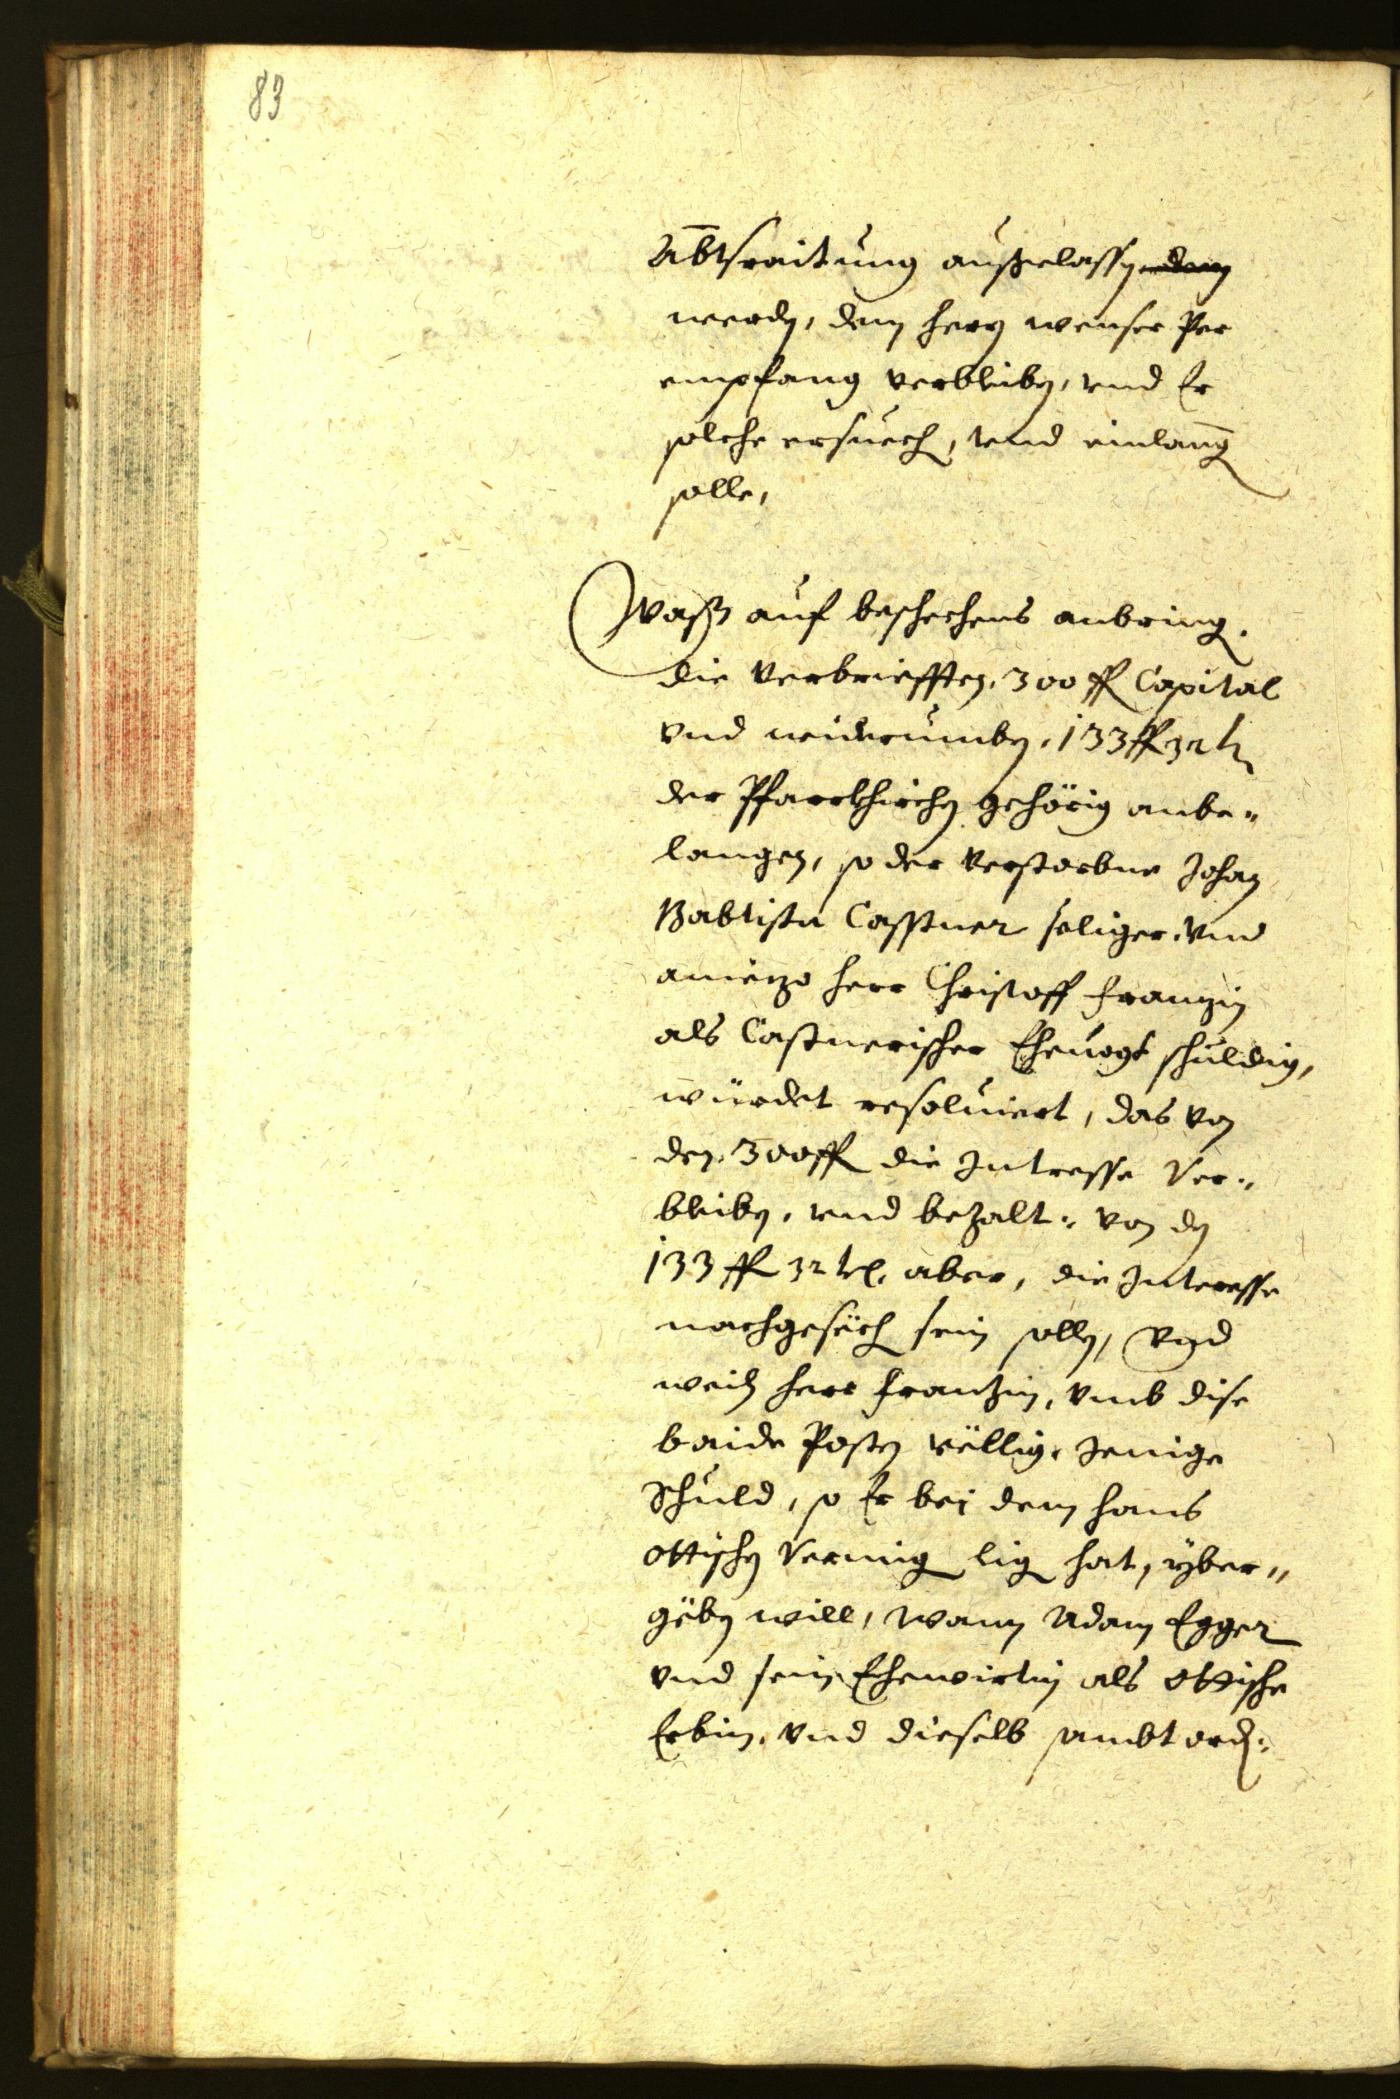 83
Abtraitung außgelassen
werden, dem herrn wenser Per
empfang verbleiben, vnd Er
solche ersuechen, vnd einlangen
solle,
Waß auf beschechens anbringen,
die verbriefften, 300 fl Capital
vnd widerumben, 133 fl 32 kr
der Pfarrkhirchen gehörig anbe-
langen, so der verstorbne Johan
Babtista Casstner seliger, vnd
aniezo herr Christoff Franzin
als Castnerischer Ehevogt schuldig,
würdet resoluiert, das von
den 300 fl die Intresse ver-
bleiben, vnd bezalt, von den
133 fl 32 kr, aber, die Interesse
nachgesëchen sein sollen, Vnd
weillen herr Frantzin, vmb dise
baide Posten vëllig, Jenige
Schuld, so Er bei dem hans
Ottischen Vermigen ligen hat, yber-
gëben will, wann Adam Egger
vnd sein Ehewirtin als Ottische
Erbin, vnd dieselb sambt